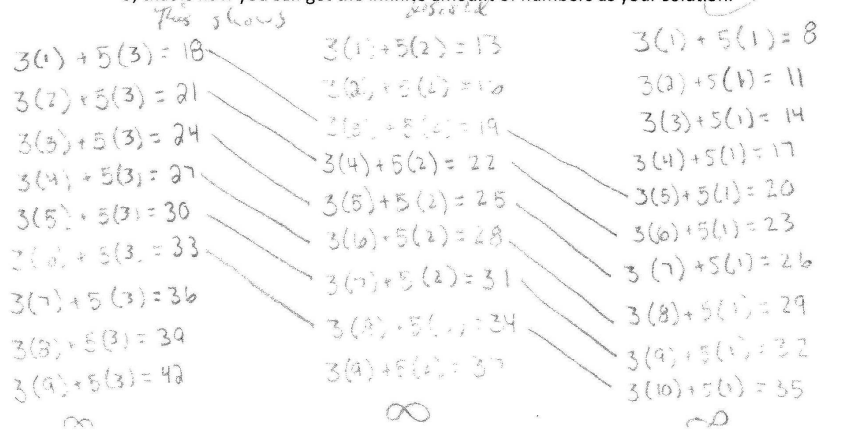 that is how you can get the infinite amount of numbers as your solution.
This shows
3(1) + 5(3) = 18
3(2) + 5(3) = 21
3(3) + 5(3) = 24
3(4) + 5(3) = 27
3(5) + 5(3) = 30
3(6) + 5(3) = 33
3(7) + 5(3) = 36
3(8) + 5(3) = 39
3(9) + 5(3) = 42
∞
3(1) + 5(2) = 13
3(2) + 5(2) = 16
3(3) + 5(2) = 19
3(4) + 5(2) = 22
3(5) + 5(2) = 25
3(6) + 5(2) = 28
3(7) + 5(2) = 31
3(8) + 5(2) = 34
3(9) + 5(2) = 37
∞
3(1) + 5(1) = 8
3(2) + 5(1) = 11
3(3) + 5(1) = 14
3(4) + 5(1) = 17
3(5) + 5(1) = 20
3(6) + 5(1) = 23
3(7) + 5(1) = 26
3(8) + 5(1) = 29
3(9) + 5(1) = 32
3(10) + 5(1) = 35
∞